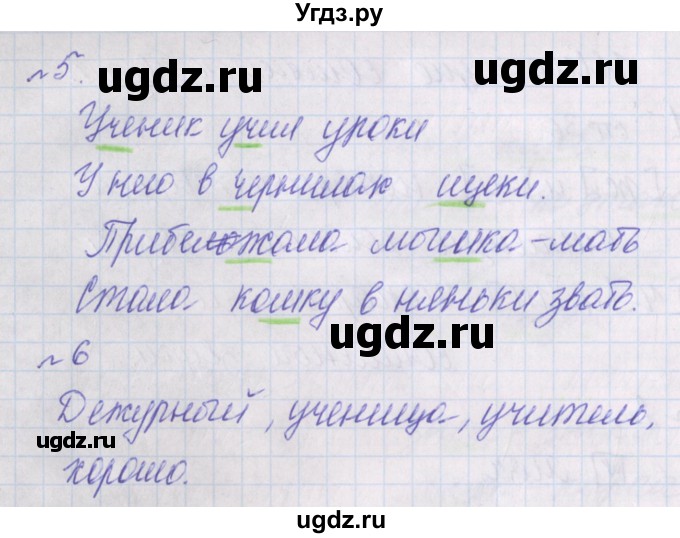 Угдз.ру
ugdz.ru
№5.
ugdz.ru
Ученик учил уроки
У него в чернилах щеки.
ugdz.ru
Прибежала мышка-мать
ugdz.ru
Стала кошку в няньки звать.
ugdz.ru
№6
Дежурный, ученица, учитель,
ugdz.ru
хорошо.
ugdz.ru
ugdz.ru